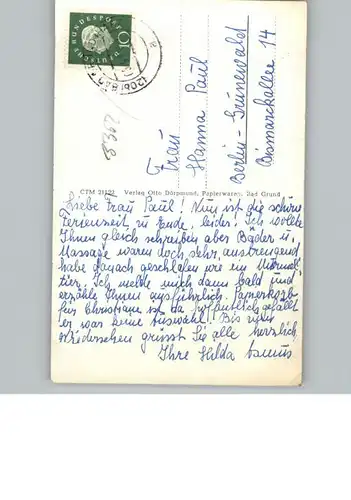 DEUTSCHE BUNDESPOST
10
Frau
Hanna Paul
Berlin-Grunewald
Bismarckallee 14
8362
CTM 21122 Verlag Otto Dörpmund, Papierwaren, Bad Grund
Liebe Frau Paul! Nun ist die schöne
Ferienzeit zu Ende, leider! Ich wollte
Ihnen gleich schreiben aber Bäder u.
Massage waren doch sehr anstrengend
habe danach geschlafen wie ein Murmel
tier. Ich melde mich dann bald und
erzähle Ihnen ausführlich. Papierkorb
für Christiane ist da hoffentlich gefällt
er war keine Auswahl! Bis zum
Wiedersehen grüsst Sie alle herzlich
Ihre Hilda